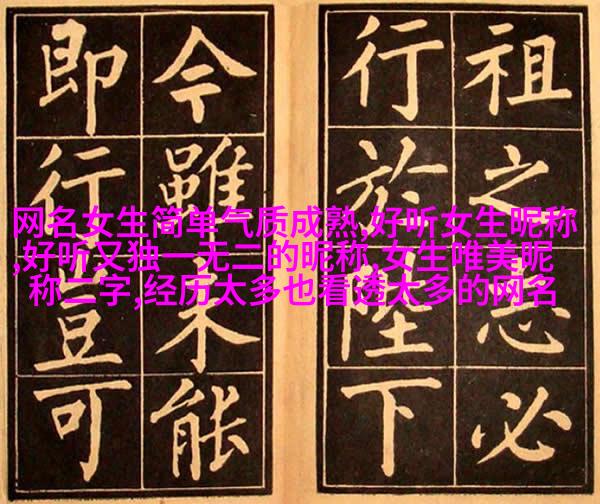 祖之志必
行於陛下
今雖未能
即行豈可
网名女生简单气质成熟,好听女生昵称
,好听又独一无二的昵称,女生唯美昵
称二字,经历太多也看透太多的网名